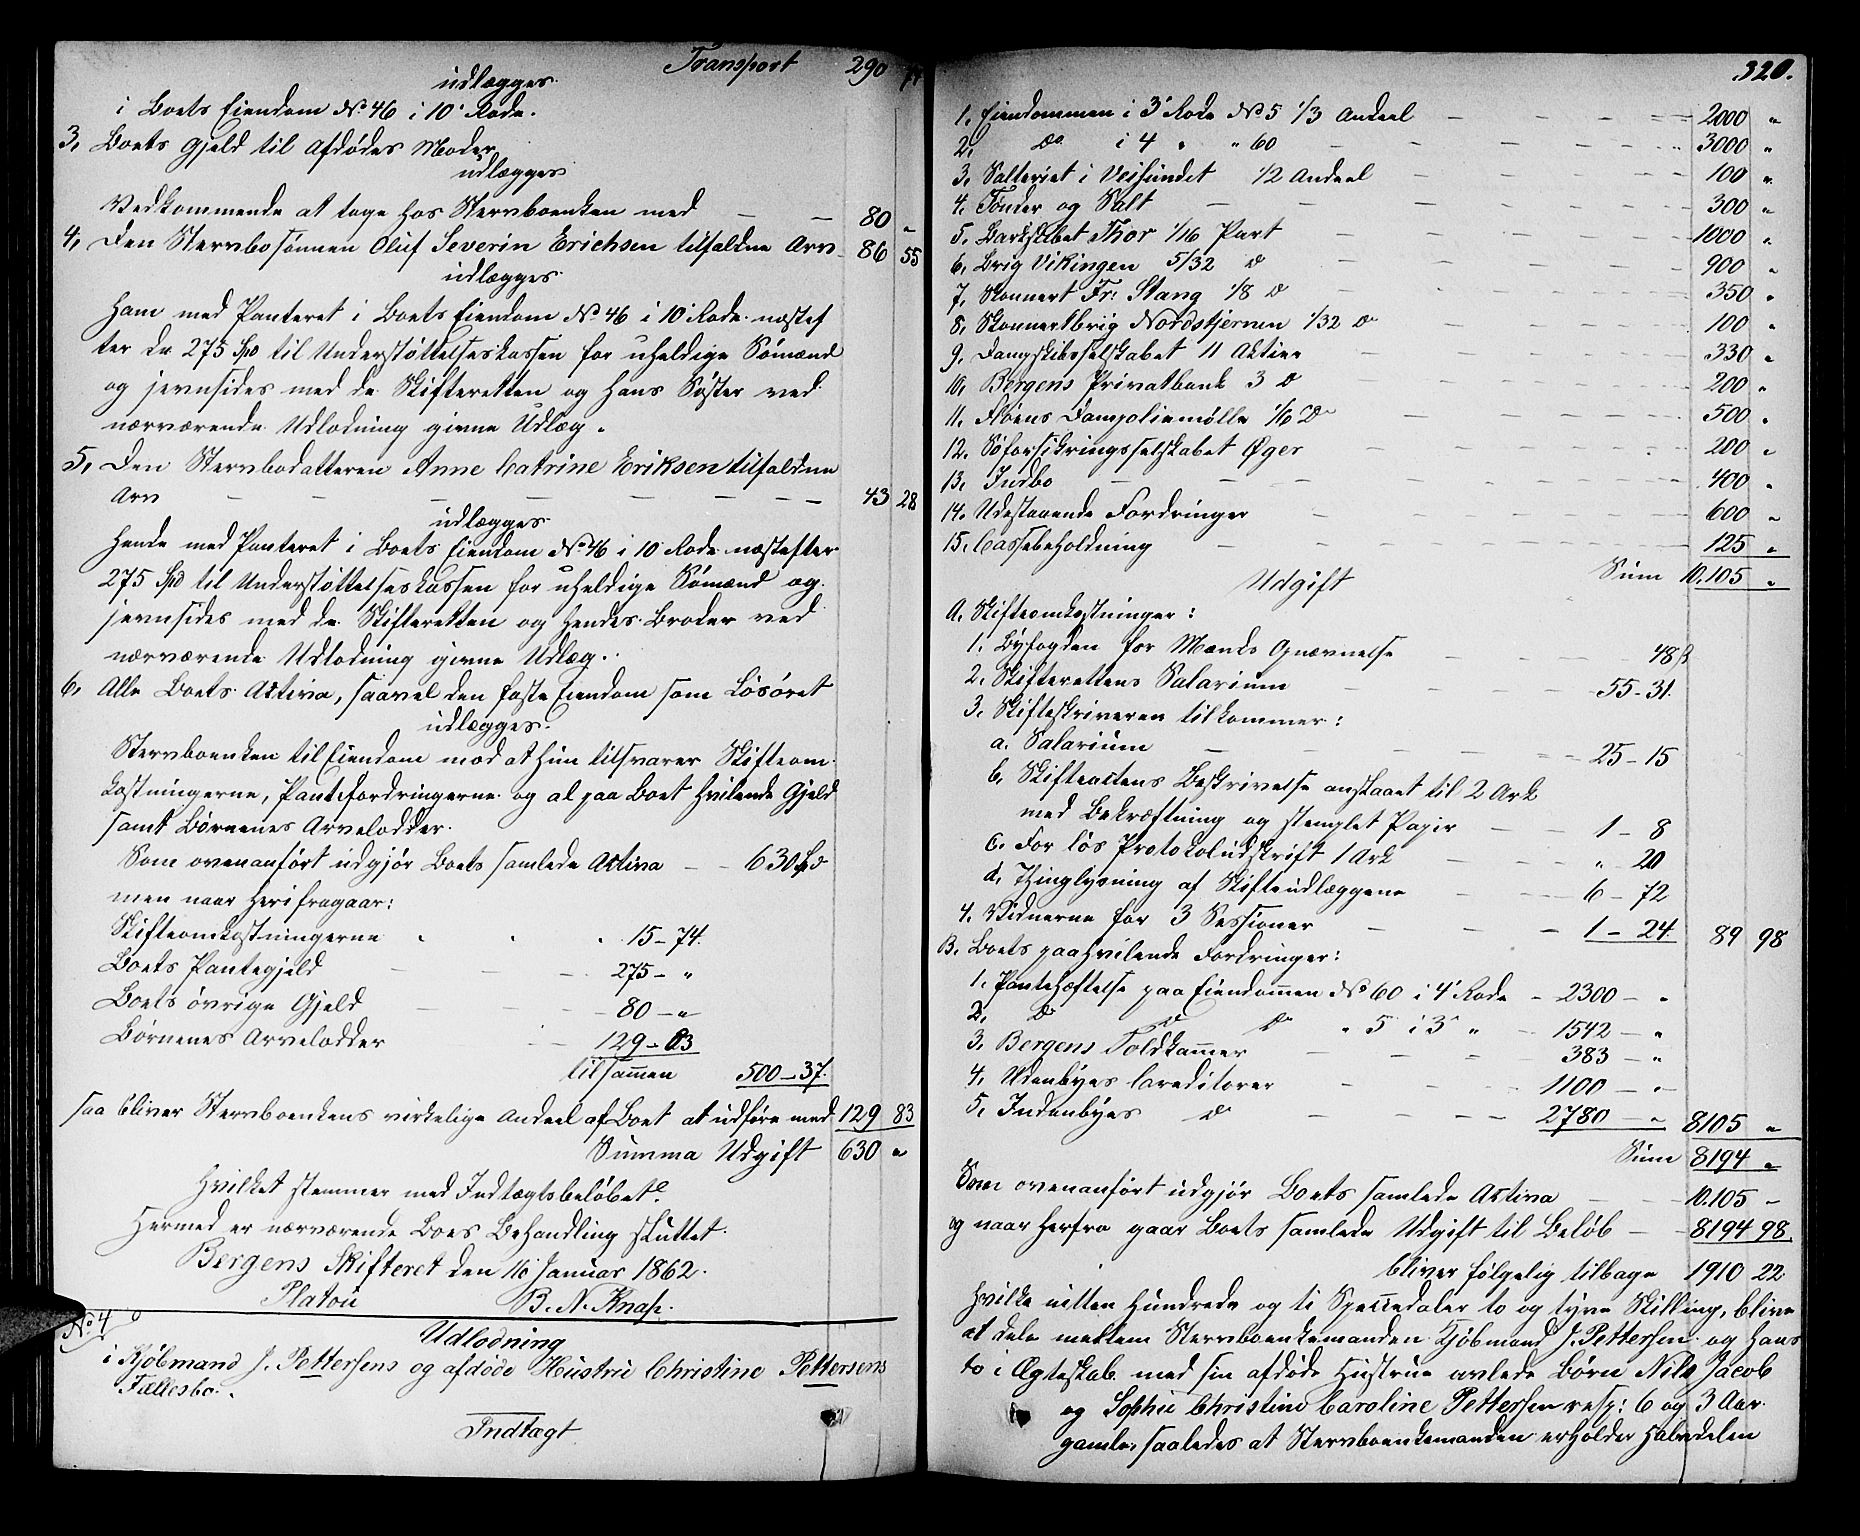 Transport 290 74
udlægges
i Boets Eiendom No 46 i 10 Rode.
3, Boets Gjeld til Afdødes Moder
udlægges
Vedkommende at tage hos Stervboenken med — — 80 "
4, Den Stervbosønnen Oluf Severin Erichsen tilfaldne Arv 86 55
udlægges
Ham med Panteret i Boets Eiendom No 46 i 10 Rode næstef
ter de 275 Spd til Understøttelseskassen for uheldige Sømænd
og jevnsides med de Skifteretten og Hans Søster ved
nærværende Udlodning givne Udlæg.
5, Den Stervbodatteren Anne Catrine Eriksen tilfaldne
Arv — — — — — — — — 43 28
udlægges
Hende med Panteret i Boets Eiendom No 46 i 10 Rode næstefter
275 Spd til Understøttelseskassen for uheldige Sømænd og
jevnsides med de Skifteretten og Hendes Broder ved
nærværende Udlodning givne Udlæg.
6, Alle Boets Activa, saavel den faste Eiendom som Løsøret
udlægges
Stervboenken til Eiendom mod at Hun tilsvarer Skifteom-
kostningerne, Pantefordringerne og al paa Boet Hvilende Gjeld
samt Børnenes Arvelodder.
Som ovenanført udgjør Boets samlede Activa — — 630 Spd
men naar Herifragaar:
Skifteomkostningerne . . . 15 – 74.
Boets Pantegjeld — — — 275 – "
Boets øvrige Gjeld — — — 80 – "
Børnenes Arvelodder — — 129 – 83
tilsammen 500 – 37.
saa bliver Stervboenkens virkelige Andeel af Boet at udføre med 129 83
Summa Udgift 630 "
Hvilket stemmer med Indtægtsbeløbet.
Hermed er nærværende Boes Behandling sluttet.
Bergens Skifteret den 16 Januar 1862.
Platou B. N. Knap.
No 4
Udlodning
i Kjøbmand J. Pettersens og afdøde Hustru Christine Pettersens
Fællesbo.
Indtægt
320.
1, Eiendommen i 3' Rode No 5 1/3 Andeel — — — — 2000 "
2, Do i 4 " " 60 — — — — 3000 "
3, Salteriet i Veisundet 1/2 Andeel — — — — 100 "
4, Tønder og Salt — — — — 300 "
5, Barkskibet Thor 1/16 Part — — — — 1000 "
6, Brig Vikingen 5/32 Do — — — — 900 "
7, Skonnert Fr: Stang 1/8 Do — — — — 350 "
8, Skonnertbrig Nordstjernen 1/32 Do — — — 100 "
9, Dampskibsselskabet 11 Aktier — — — 330 "
10, Bergens Privatbank 3 Do — — — 200 "
11. Fløens Dampoliemølle 1/6 Do — — — 500 "
12. Søforsikringsselskabet Øger — — — 200 "
13, Indbo — — — — 400 "
14. Udestaaende Fordringer — — — 600 "
15, Cassebeholdning — — — 125 "
Sum 10.105 "
Udgift
A. Skifteomkostninger:
1. Byfogden for Mænds Opnævnelse — — 48 ß
2. Skifterettens Salarium — — 55 – 31.
3. Skifteskriveren tilkommer:
a. Salarium — — — 25 – 15
b, Skifteaktens Beskrivelse anslaaet til 2 Ark
med Bekræftning og stemplet Papir — — 1 – 8
c. For løs Protokoludskrift 1 Ark — — " 20
d. Thinglysning af Skifteudlæggene — — 6 – 72
4. Vidnerne for 3 Sessioner — — 1 – 24. 89 98
B. Boets paahvilende Fordringer:
1. Pantehæftelse paa Eiendommen No 60 i 4' Rode – 2300 – "
2. Do Do Do " 5 i 3 " – 1542 – "
3. Bergens Toldkammer — — — 383 – "
4, Udenbyes Creditorer — — — 1100 – "
5, Indenbyes Do — — — 2780 – " 8105 "
Sum 8194 "
Som ovenanført udgjør Boets samlede Activa — — 10.105 –
og naar Herfra gaar Boets samlede Udgift til Beløb — – 8194 98.
bliver følgelig tilbage 1910 22
Hvilke nitten Hundrede og ti Speciedaler to og tyve Skilling, blive
at dele mellem Stervboenkemanden Kjøbmand J. Pettersen og Hans
to i Ægteskab med sin afdøde Hustrue avlede Børn Nils Jacob
og Sophie Christine Caroline Pettersen resp: 6 og 3 Aar
gamle, saaledes at Stervboenkemanden erholder Halvdelen